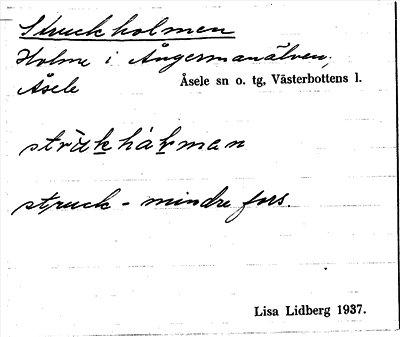 Struckholmen
Holme i Ångermanälven,
Åsele
Åsele sn o. tg, Västerbottens l.
struck - mindre fors.
Lisa Lidberg 1937.